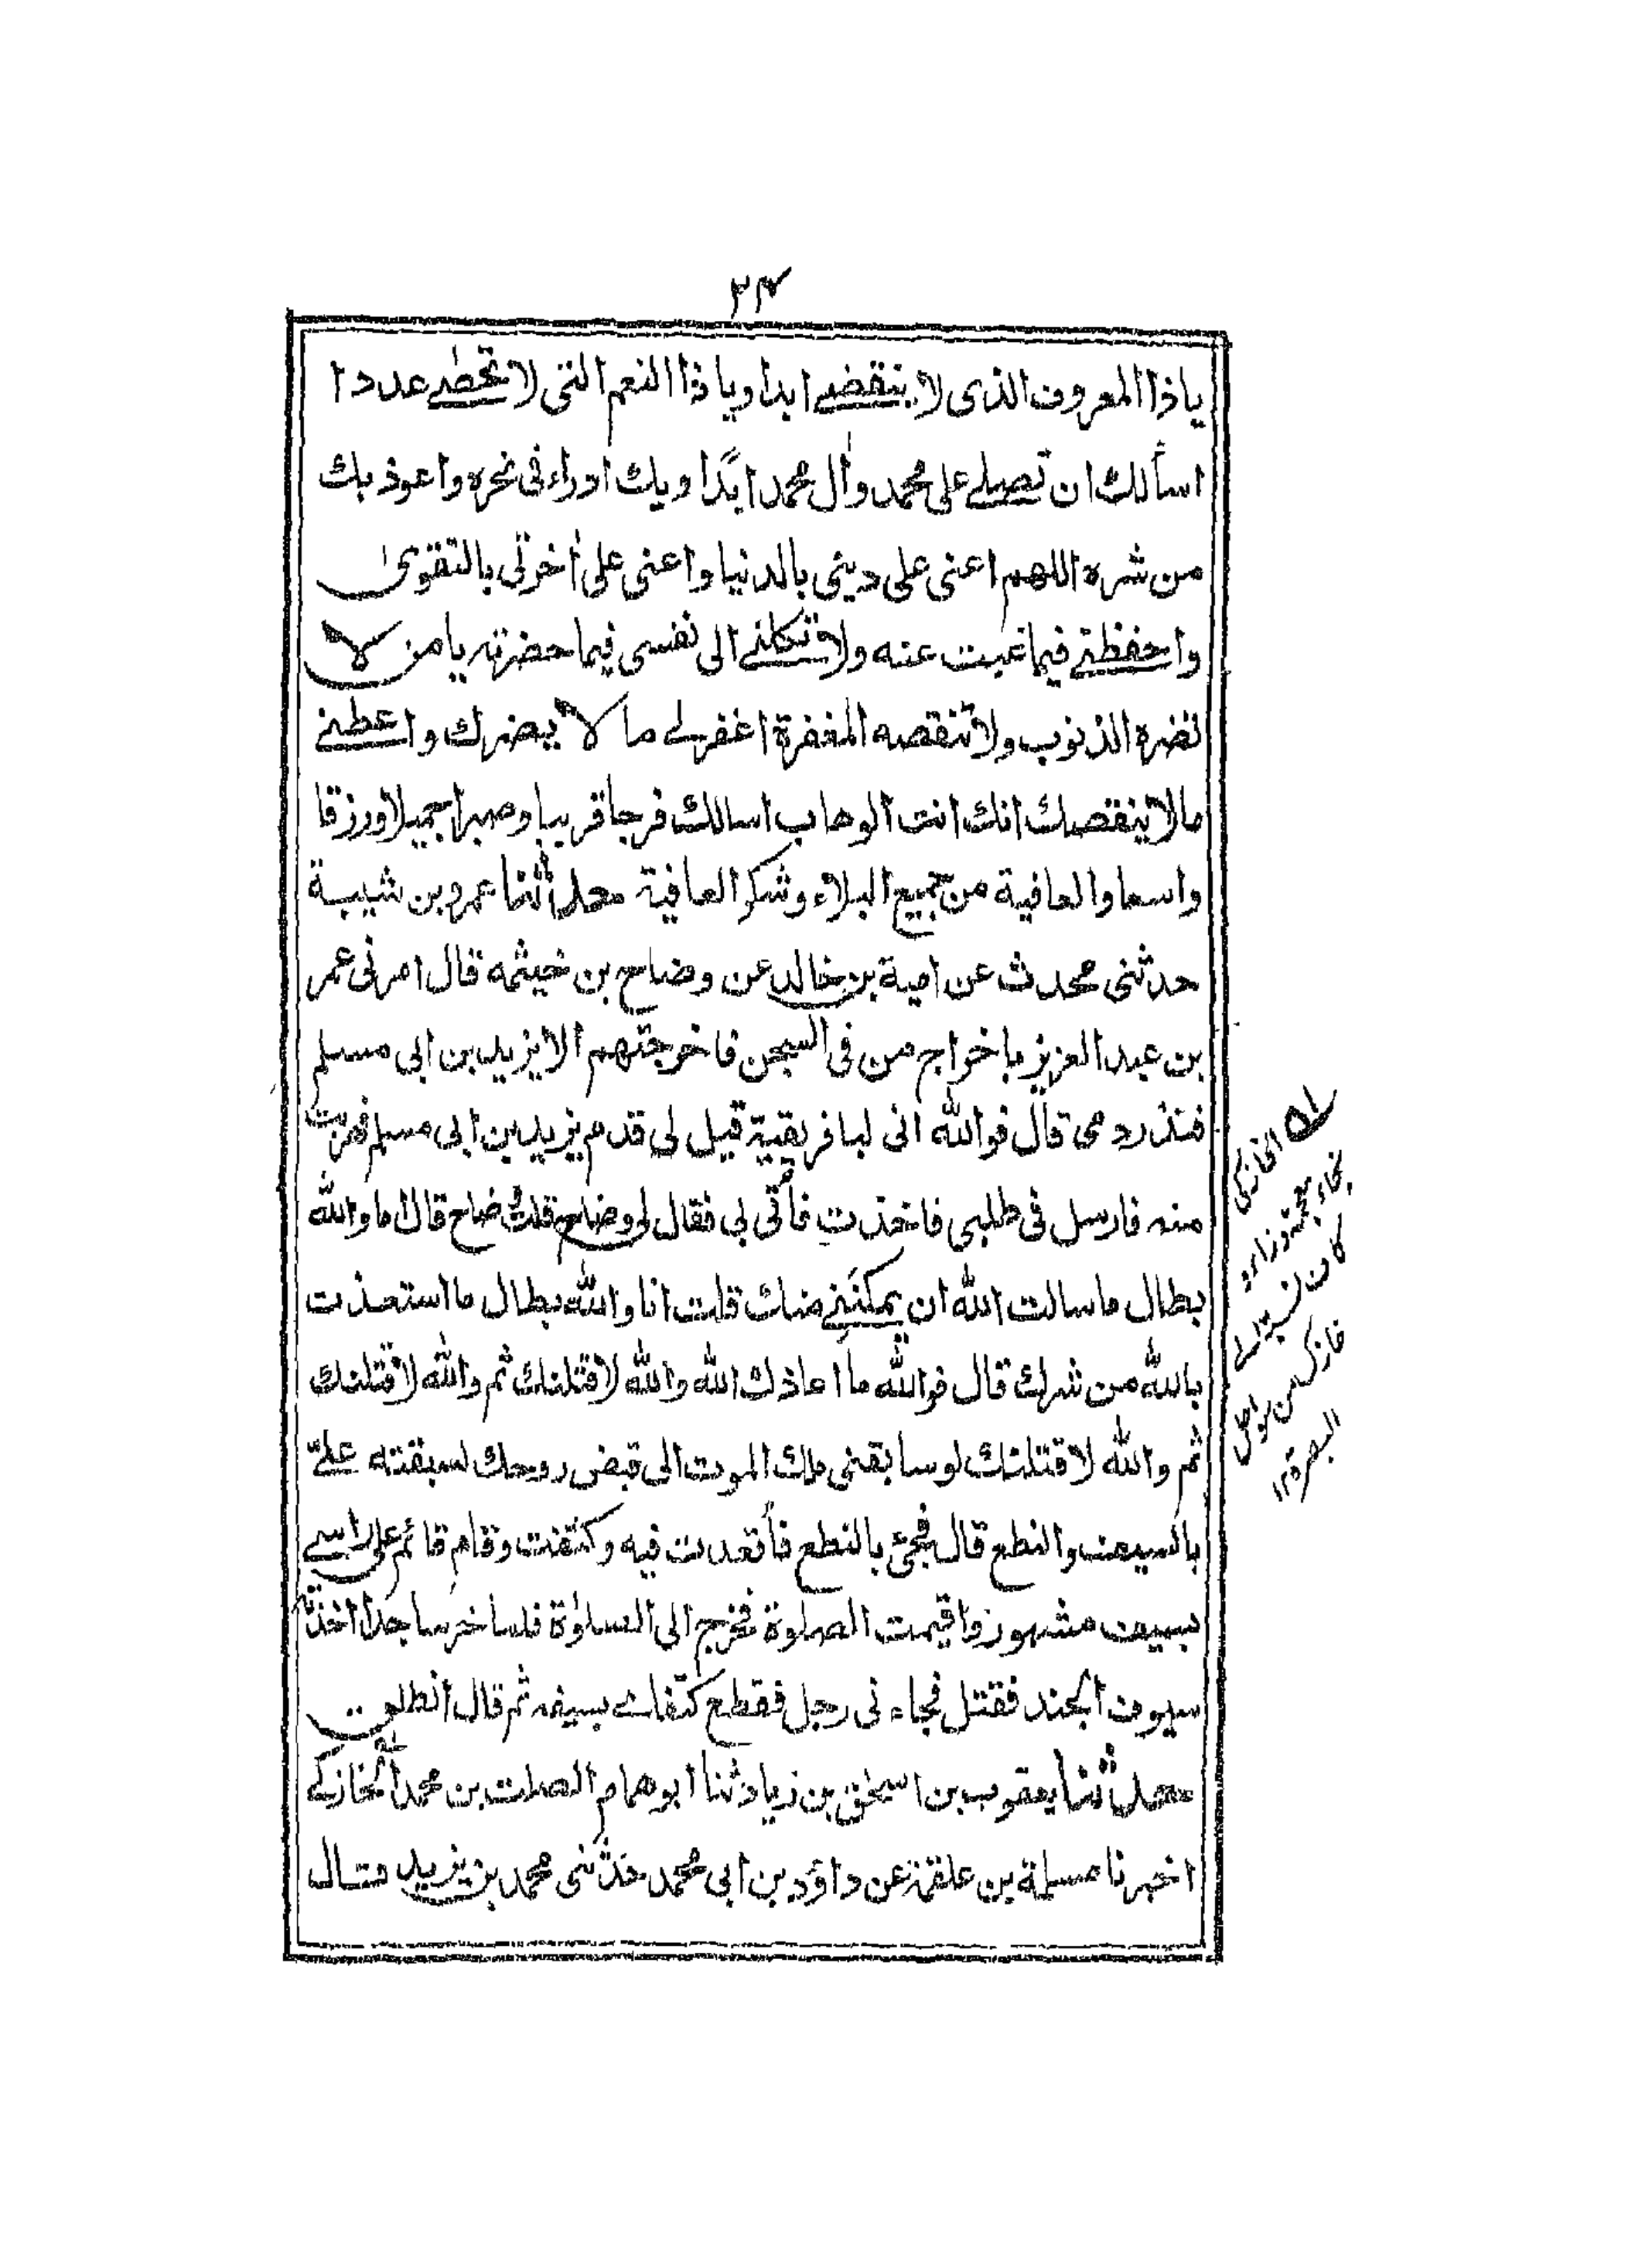 ٣٤
ياذا المعروف الذى لا ينقضے ابدا ويا ذا النعم التى لا تحصٰے عددا
اسألك ان تصلے على محمد واٰل محمد ابدًا وبك ادراء فى نحره واعوذ بك
من شره اللهم اعنى على دينى بالدنيا واعنى على اٰخرتى بالتقوىٰ
واحفظنے فيما غبت عنه ولا تكلنے الى نفسى فيما حضرته يا من لا
تضره الذنوب ولا تنقصه المغفرة اغفرلے ما لا يضرك واعطنے
مالا ينقصك انك انت الوهاب اسالك فرجا قريبا وصبرا جميلا ورزقا
واسعا والعافية من جميع البلاء وشكر العافية حدثنا عمرو بن شيبة
حدثنى محدث عن امية بن خالد عن وضاح بن خيثمه قال امرنى عمر
بن عبد العزيز باخراج من فى السجن فاخرجتهم الا يزيد بن ابى مسلم
فنذر دمى قال فوالله انى لبافريقية قيل لى قدم يزيد بن ابى مسلم فهربت
منه فارسل فى طلبى فاخذت فأتى بى فقال لى وضاح قلت وضاح قال اما والله
بطال ما سالت الله ان يمكننے منك قلت انا والله بطال ما استعذت
بالله من شرك قال فوالله ما اعاذك الله والله لاقتلنك ثم والله لاقتلنك
ثم والله لاقتلنك لو سابقنى ملك الموت الى قبض روحك لسبقته علىّ
بالسيف والنطع قال فجئ بالنطع فأقعدت فيه وكتفت وقام قائم على راسے
بسيف مشهور واقيمت الصلوة فخرج الى الصلوٰة فلما خر ساجدا اخذته
سيوف الجند فقتل فجاء نى رجل فقطع كتفاے بسيفه ثم قال انطلق
حدثنا يعقوب بن اسحٰق بن زياد ثنا ابو همام الصلت بن محمد الخاركے
اخبرنا مسلمة بن علقمة عن داؤد بن ابى محمد حدثنى محمد بن يزيد قال
الخاركى
بخاء معجمة وزاء
كان نسبته الى
خارك من سواحل
البصرة ١٢